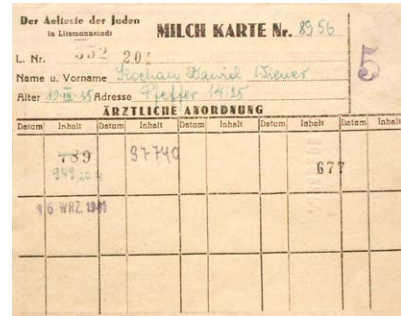 Der Aelteste der Juden
in Litzmannstadt
MILCH KARTE Nr. 8956
5
L. Nr. 552 204
Name u. Vorname Kochan Dawid Wiener
Alter Adresse Pfeffer 14-25
ÄRZTLICHE ANORDNUNG
Datum Inhalt Datum Inhalt Datum Inhalt Datum Inhalt
789 97740 677
16 WRZ. 1941